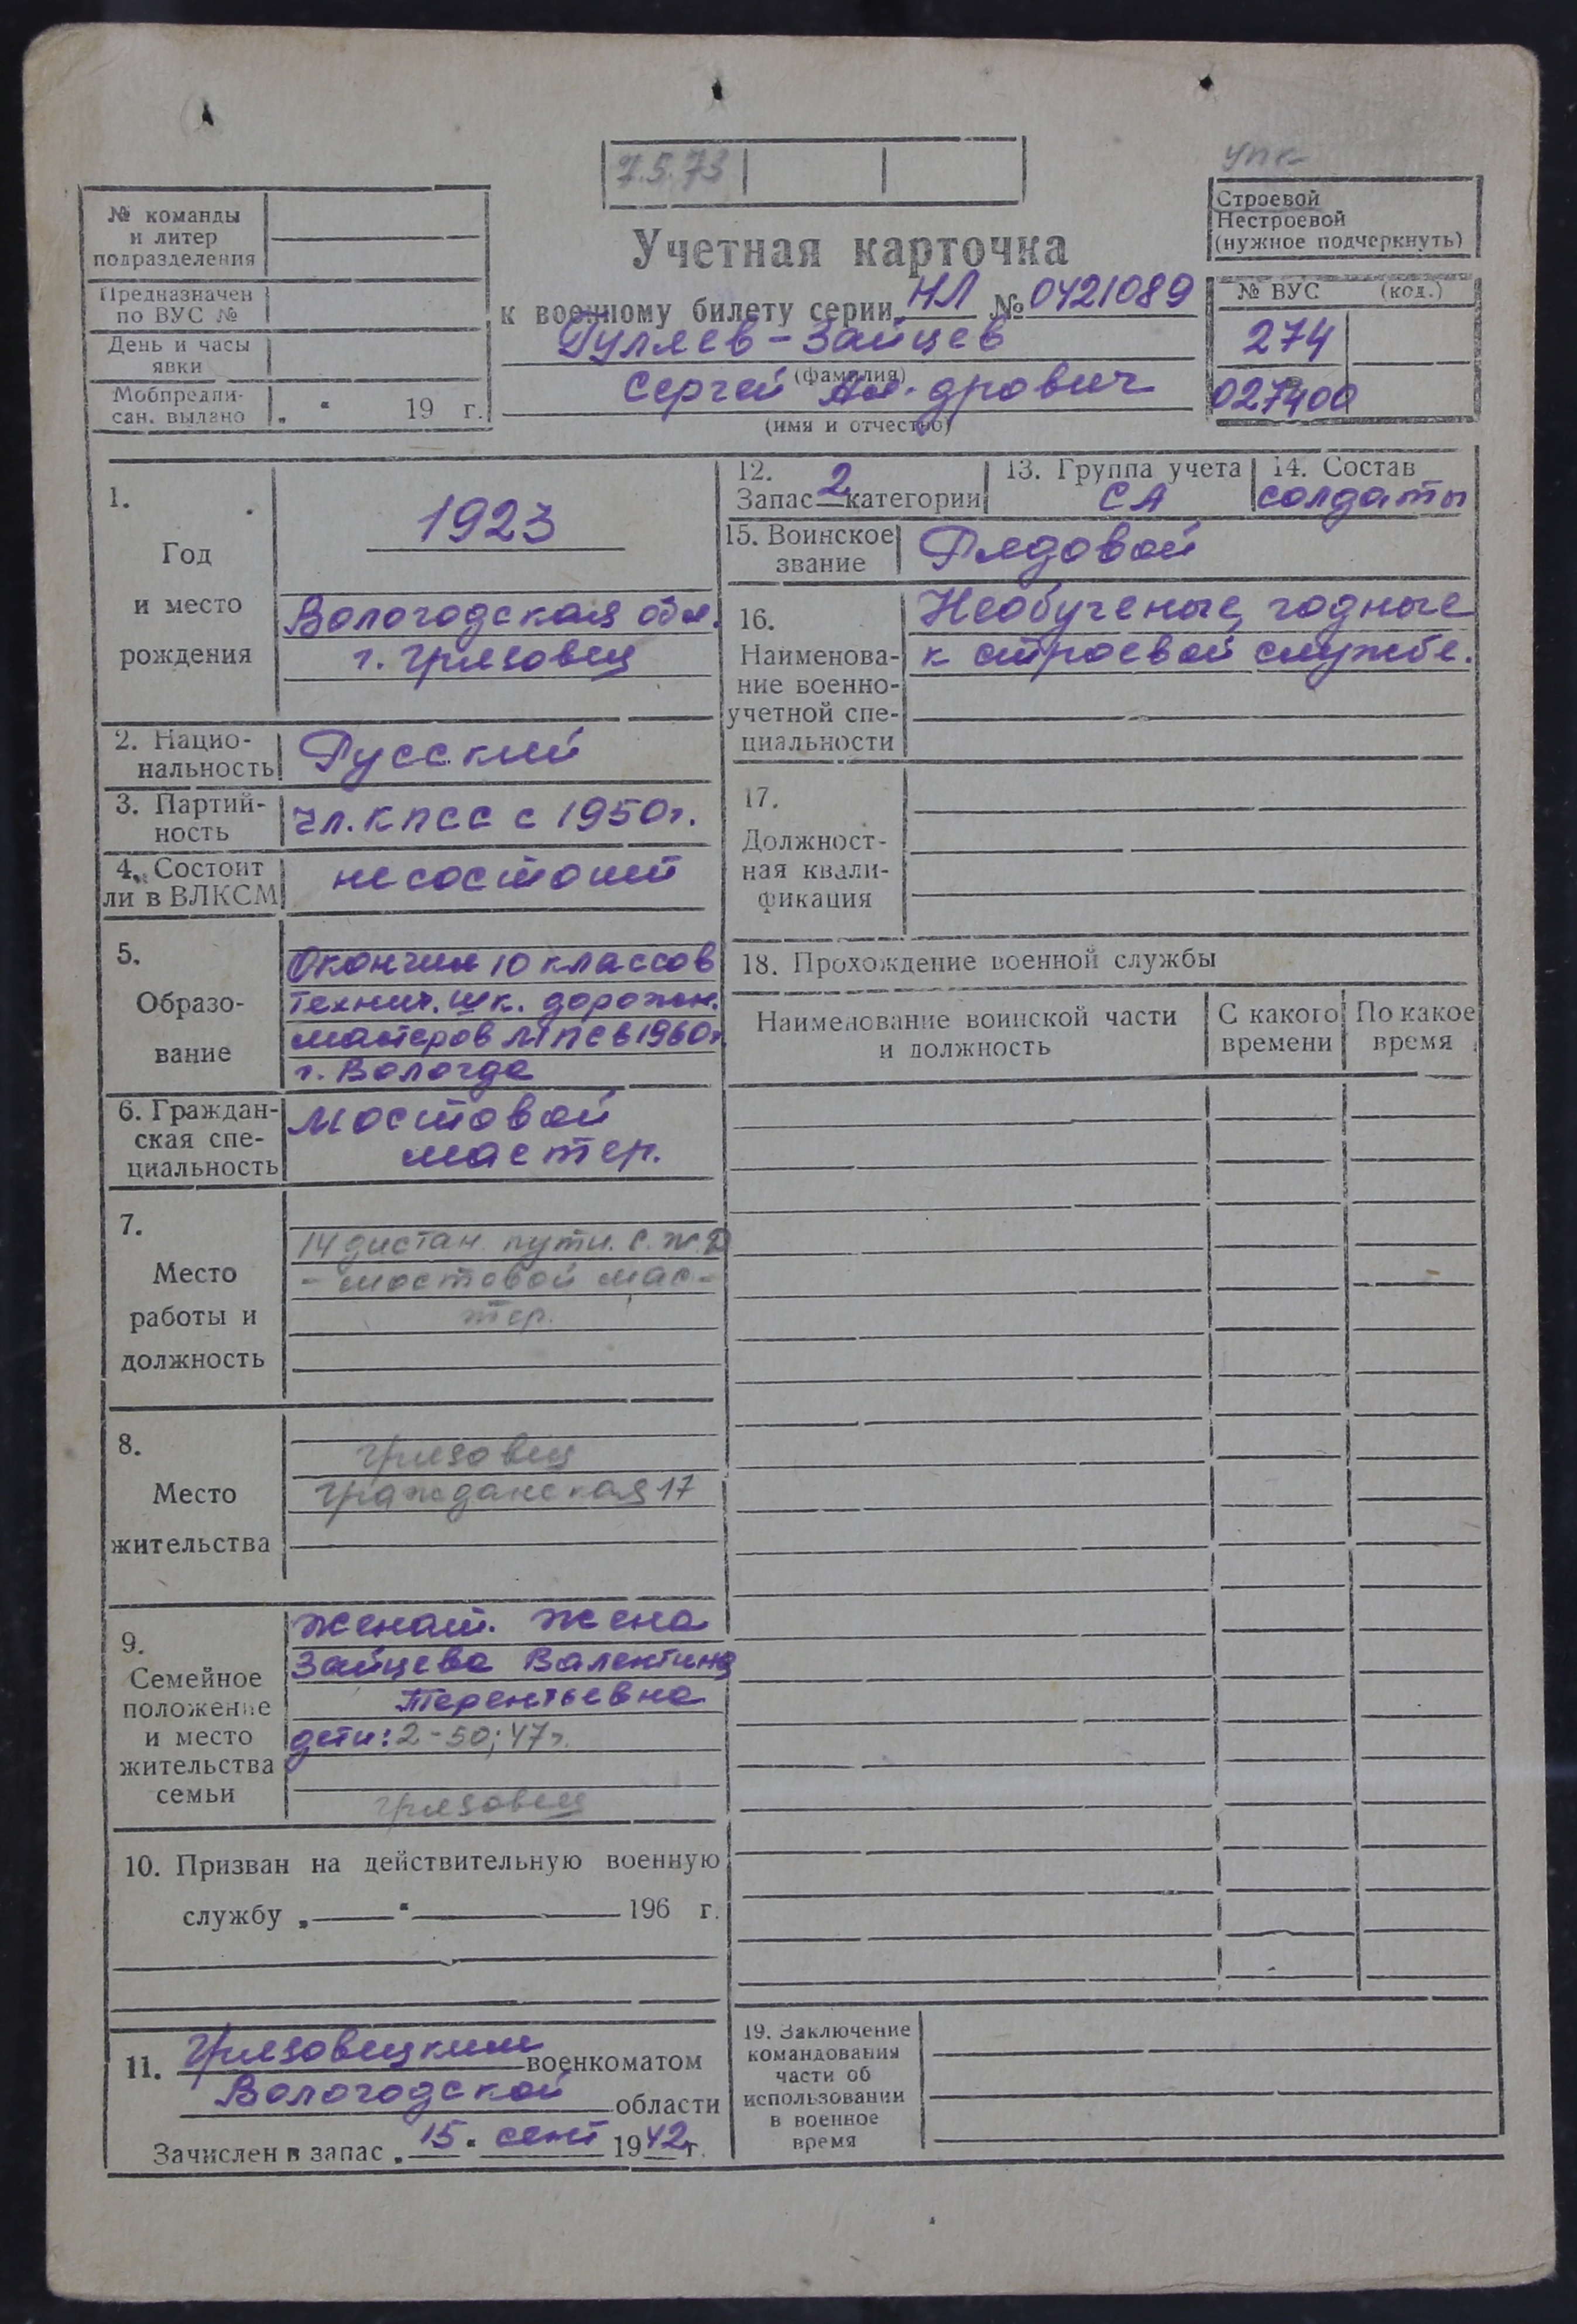 7.5.73
УПК
№ команды
и литер
подразделения
Предназначен
по ВУС №
День и часы
явки
Мобпредпи-
сан. выдано „ “ 19 г.
Строевой
Нестроевой
(нужное подчеркнуть)
Учетная карточка
к военному билету серии НЛ № 0421089
Гуляев-Зайцев
(фамилия)
Сергей Ал-дрович
(имя и отчество)
№ ВУС (код.)
274
027400
1.
Год
и место
рождения
1923
Вологодская обл.
г. Грязовец
2. Нацио-
нальность Русский
3. Партий-
ность чл. КПСС с 1950г.
4. Состоит
ли в ВЛКСМ не состоит
5.
Образо-
вание
Окончил 10 классов
технич. шк. дорожн.
мастеров МПС в 1960г
г. Вологда
6. Граждан-
ская спе-
циальность
мостовой
мастер.
7.
Место
работы и
должность
14 дистан. пути. С.Ж.Д
- мостовой мас-
тер.
8.
Место
жительства
Грязовец
Гражданская 17
9.
Семейное
положение
и место
жительства
семьи
Женат. Жена
Зайцева Валентина
Терентьевна
дети: 2-50; 47г.
Грязовец
10. Призван на действительную военную
службу „ “ 196 г.
11. Грязовецким военкоматом
Вологодской области
Зачислен в запас „15“ сент 1942г.
12.
Запас 2 категории
13. Группа учета
СА
14. Состав
солдаты
15. Воинское
звание Рядовой
16.
Наименова-
ние военно-
учетной спе-
циальности
Необученые, годные
к строевой службе.
17.
Должност-
ная квали-
фикация
18. Прохождение военной службы
Наименование воинской части
и должность
С какого
времени
По какое
время
19. Заключение
командования
части об
использовании
в военное
время